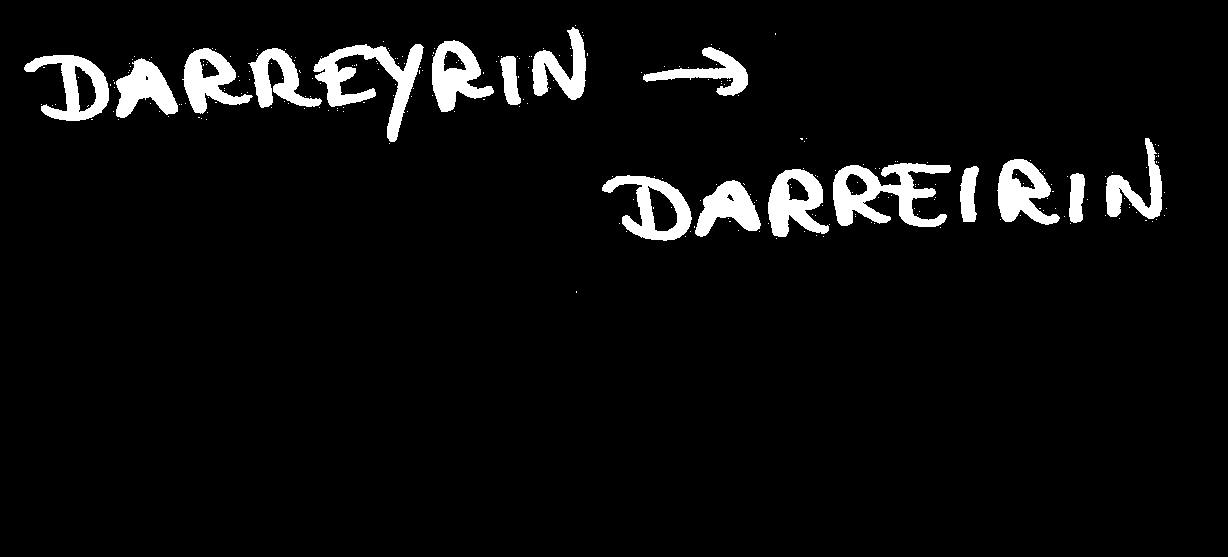 DARREYRIN →
DARREIRIN